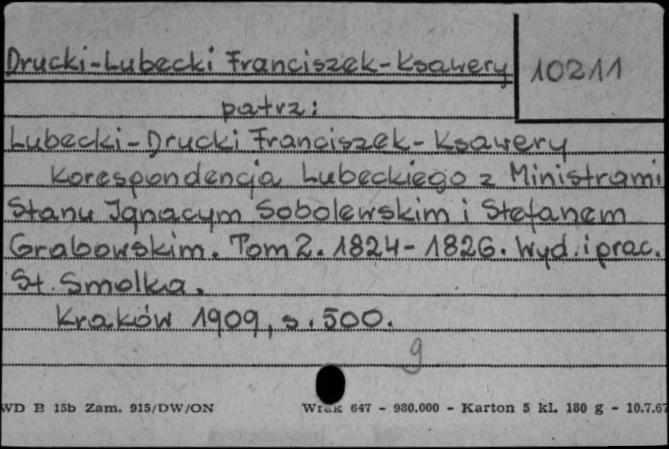 Drucki-Lubecki Franciszek-Ksawery
10211
patrz:
Lubecki-Drucki Franciszek-Ksawery
Korespondencja Lubeckiego z Ministrami
Stanu Ignacym Sobolewskim i Stefanem
Grabowskim. Tom 2. 1824-1826. Wyd. i prac.
St. Smolka.
Kraków 1909, s. 500.
g
WD B 15b Zam. 915/DW/ON
647 - 930.000 - Karton 5 kl. 180 g - 10.7.67